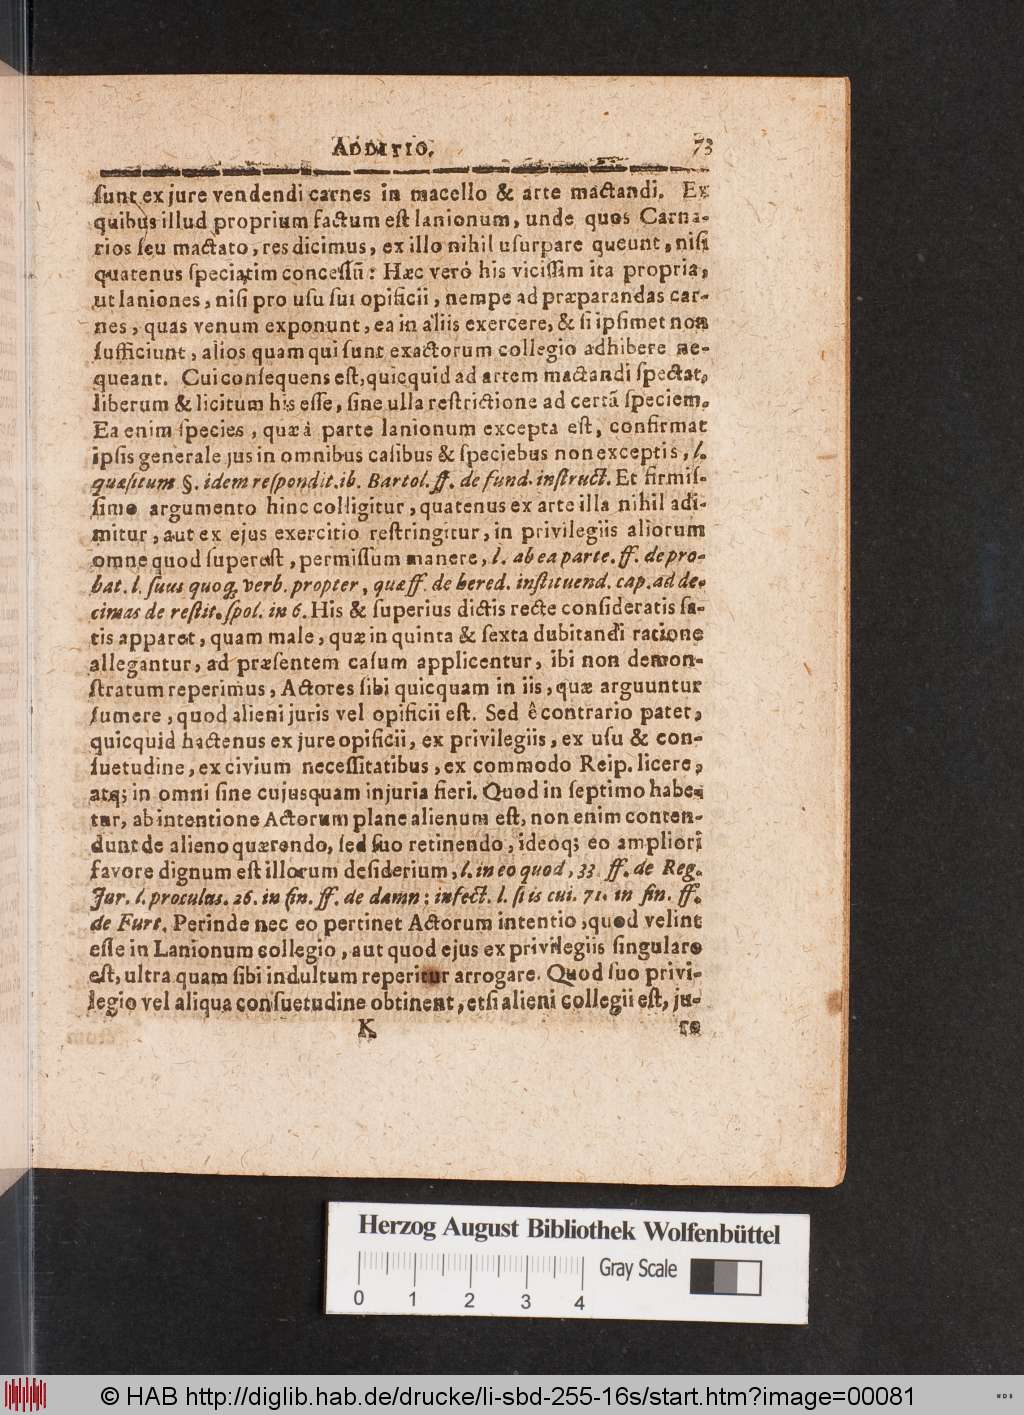 ADDITIO. 73
ſunt ex jure vendendi carnes in macello & arte mactandi. Ex
quibus illud proprium factum eſt lanionum, unde quos Carna-
rios ſeu mactato, res dicimus, ex illo nihil uſurpare queunt, niſi
quatenus ſpeciatim conceſſū: Hæc veró his viciſſim ita propria,
ut laniones, niſi pro uſu ſui opificii, nempe ad præparandas car-
nes, quas venum exponunt, ea in aliis exercere, & ſi ipſimet non
ſufficiunt, alios quam qui ſunt exactorum collegio adhibere ne-
queant. Cui conſequens eſt, quicquid ad artem mactandi ſpectat,
liberum & licitum his eſſe, ſine ulla reſtrictione ad certã ſpeciem.
Ea enim ſpecies, quæ à parte lanionum excepta eſt, confirmat
ipſis generale jus in omnibus caſibus & ſpeciebus non exceptis, l.
quæſitum §. idem reſpondit. ib. Bartol. ff. de fund. inſtruct. Et firmiſ-
ſimo argumento hinc colligitur, quatenus ex arte illa nihil adi-
mitur, aut ex ejus exercitio reſtringitur, in privilegiis aliorum
omne quod ſupereſt, permiſſum manere, l. ab ea parte. ff. de pro-
bat. l. ſuus quoq; verb. propter, quæ ff. de hered. inſtituend. cap. ad de-
cimas de reſtit. ſpol. in 6. His & ſuperius dictis recte conſideratis ſa-
tis apparet, quam male, quæ in quinta & ſexta dubitandi ratione
allegantur, ad præſentem caſum applicentur, ibi non demon-
ſtratum reperimus, Actores ſibi quicquam in iis, quæ arguuntur
ſumere, quod alieni juris vel opificii eſt. Sed ê contrario patet,
quicquid hactenus ex jure opificii, ex privilegiis, ex uſu & con-
ſuetudine, ex civium neceſſitatibus, ex commodo Reip. licere,
atq; in omni ſine cujusquam injuria fieri. Quod in ſeptimo habe-
tur, ab intentione Actorum plane alienum eſt, non enim conten-
dunt de alieno quærendo, ſed ſuo retinendo, ideoq; eo ampliori
favore dignum eſt illorum deſiderium, l. in eo quod, 33. ff. de Reg.
Jur. l. proculus. 26. in fin. ff. de damn: infect. l. ſi is cui. 71. in fin. ff.
de Furt. Perinde nec eo pertinet Actorum intentio, quod velint
eſſe in Lanionum collegio, aut quod ejus ex privilegiis ſingulare
eſt, ultra quam ſibi indultum reperitur arrogare. Quod ſuo privi-
legio vel aliqua conſuetudine obtinent, etſi alieni collegii eſt, ju-
K re
Herzog August Bibliothek Wolfenbüttel
Gray Scale
0 1 2 3 4
© HAB http://diglib.hab.de/drucke/li-sbd-255-16s/start.htm?image=00081